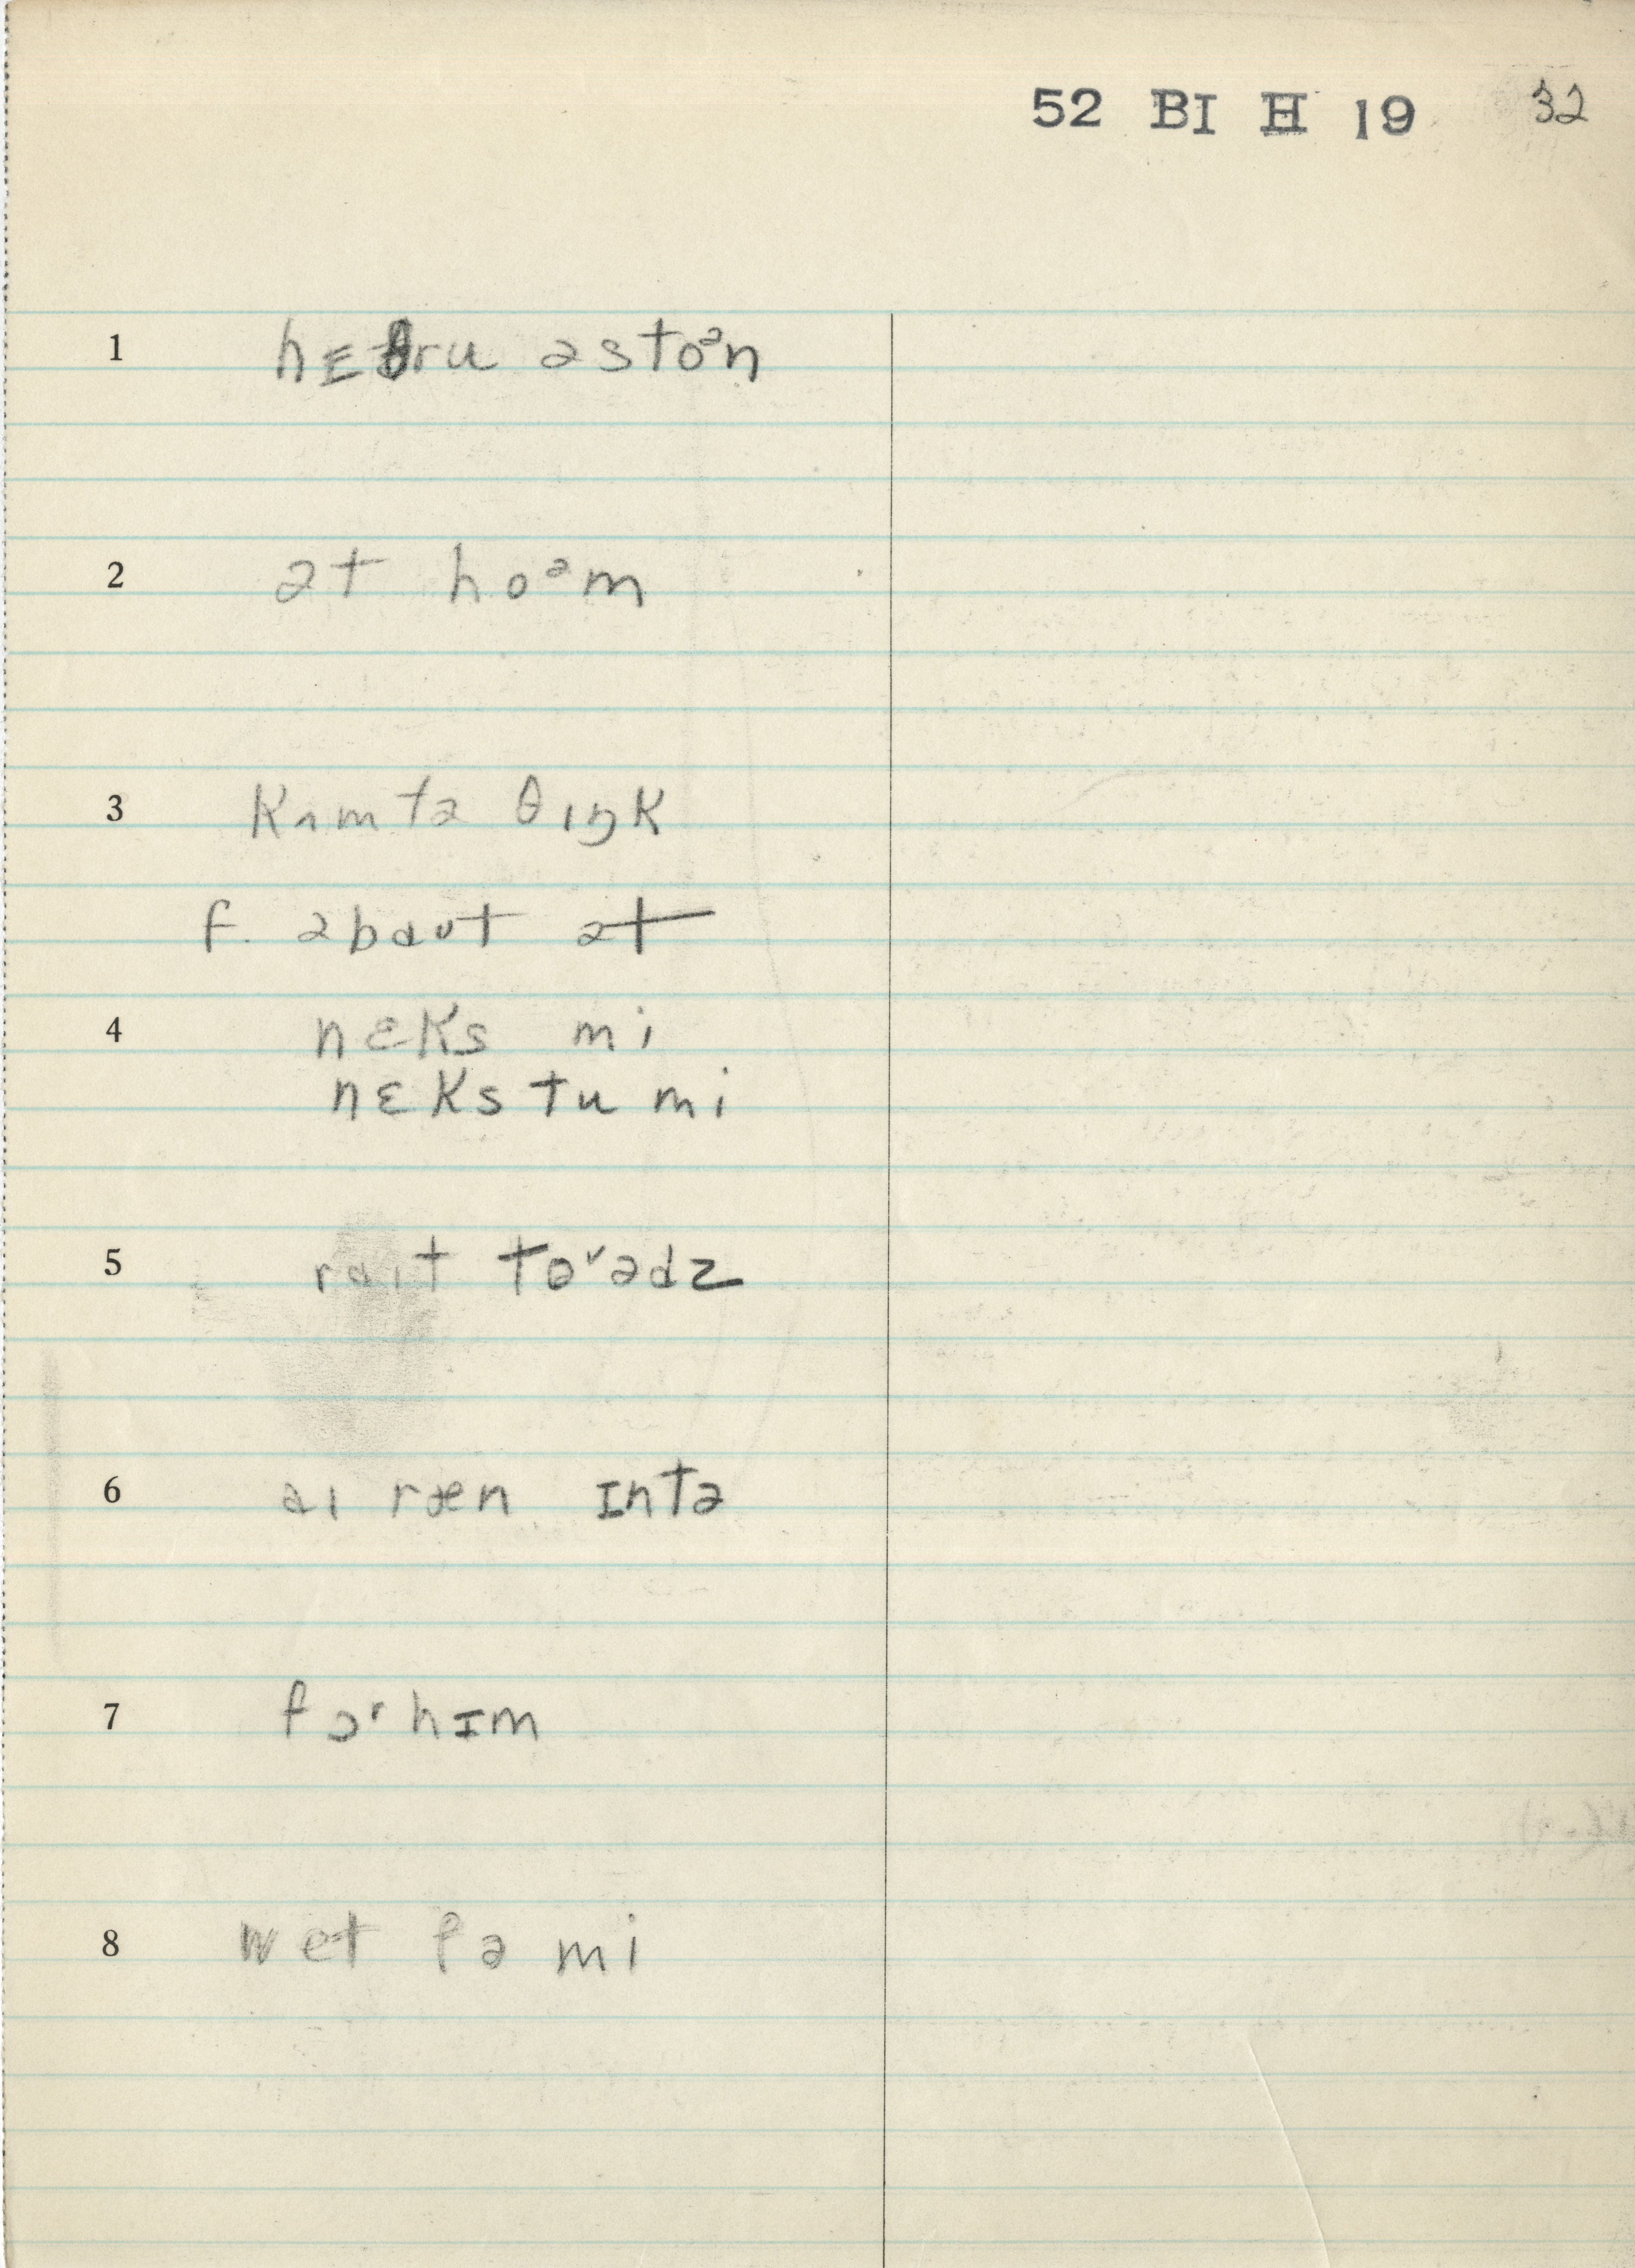 52 BI H 19 32
1 hɛθru ə stoᵊn
2 ət hoᵊm
3 kʌm tə θɪŋk
f. əbaʊt ət
4 nɛks mi
nɛks tu mi
5 raɪt toʳədz
6 aɪ ræn ɪntə
7 fɔʳ hɪm
8 wet fə mi